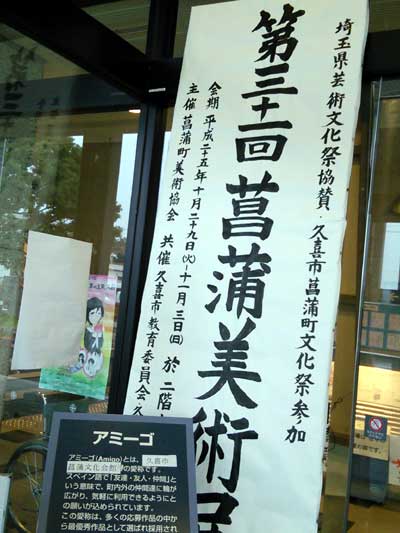 埼玉県芸術文化祭協賛・久喜市菖蒲町文化祭参加
第三十一回菖蒲美術展
会期 平成二十五年十月二十九日(火)~十一月三日(日) 於 二階
主催 菖蒲町美術協会 共催 久喜市教育委員会
アミーゴ
アミーゴ(Amigo)とは、久喜市
菖蒲文化会館の愛称です。
スペイン語で「友達・友人・仲間」と
いう意味で、町内外の仲間達に輪が
広がり、気軽に利用できるようにと
の願いが込められています。
この愛称は、多くの応募作品の中か
ら最優秀作品として選ばれ採用され